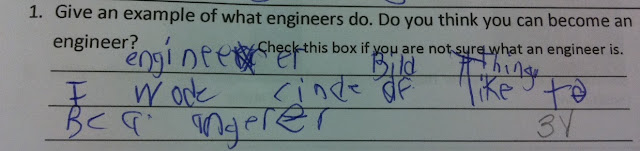 1. Give an example of what engineers do. Do you think you can become an
engineer? Check this box if you are not sure what an engineer is.
engineer Bild things
I wode cinde of like to
Be a ingerer 3Y